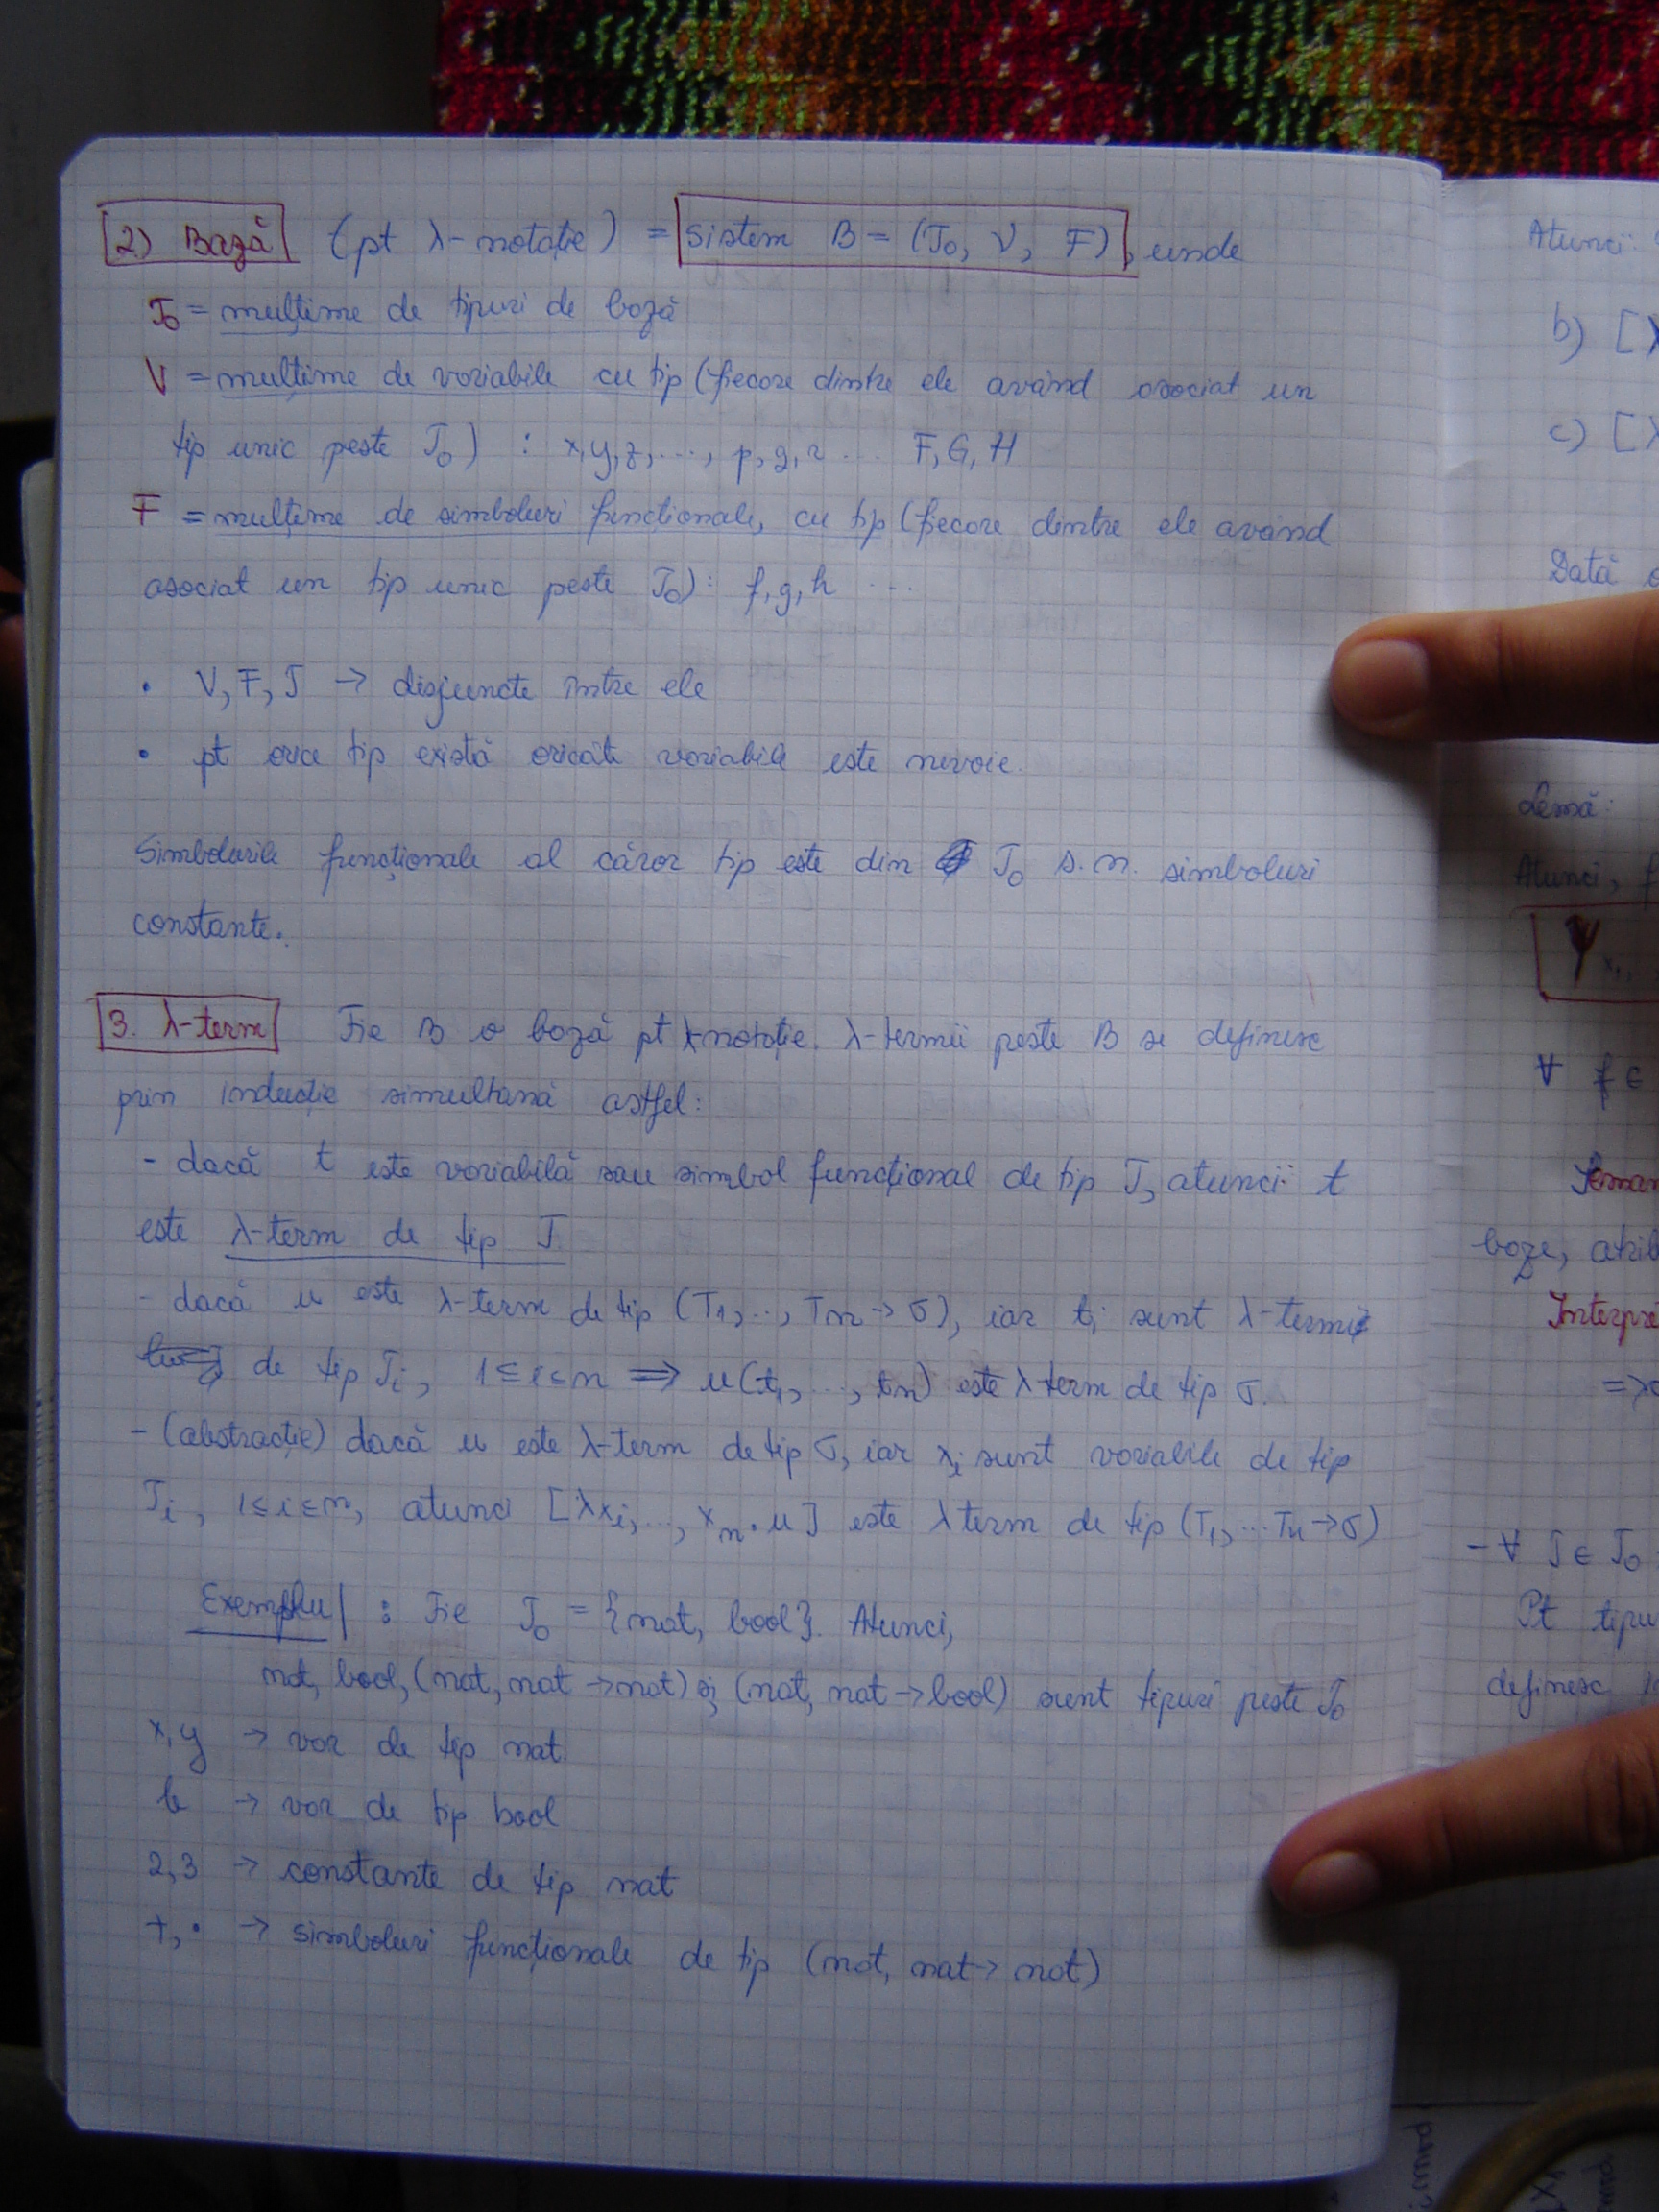 2) Bază (pt λ-notație) = sistem B = (T₀, V, F), unde
T₀ = mulțime de tipuri de bază
V = mulțime de variabile cu tip (fiecare dintre ele având asociat un
tip unic peste T₀) : x, y, z, ..., p, q, r ... F, G, H
F = mulțime de simboluri funcționale, cu tip (fiecare dintre ele având
asociat un tip unic peste T₀): f, g, h ...
• V, F, T → disjuncte între ele
• pt orice tip există oricâte variabile este nevoie.
Simbolurile funcționale al căror tip este din T₀ s.n. simboluri
constante.
3. λ-term Fie B o bază pt λ-notație. λ-termii peste B se definesc
prin inducție simultană astfel:
- dacă t este variabilă sau simbol funcțional de tip T, atunci t
este λ-term de tip T
- dacă u este λ-term de tip (T₁, ..., Tn → σ), iar ti sunt λ-termi
de tip Ti, 1 ≤ i ≤ n ⟹ u(t₁, ..., tn) este λ term de tip σ.
- (abstracție) dacă u este λ-term de tip σ, iar xi sunt variabile de tip
Ti, 1 ≤ i ≤ n, atunci [λxi, ..., xn . u] este λ term de tip (T₁, ... Tn → σ)
Exemplu : Fie T₀ = {nat, bool}. Atunci,
nat, bool, (nat, nat → nat) și (nat, nat → bool) sunt tipuri peste T₀
x, y → var de tip nat.
b → var de tip bool
2, 3 → constante de tip nat
+, · → simboluri funcționale de tip (nat, nat → nat)
Atunci:
b) [λ
c) [λ
Dată
Lemă:
Atunci, f
∀ f ∈
baze, atrib
Interpre
- ∀ T ∈ T₀
Pt tipu
definesc